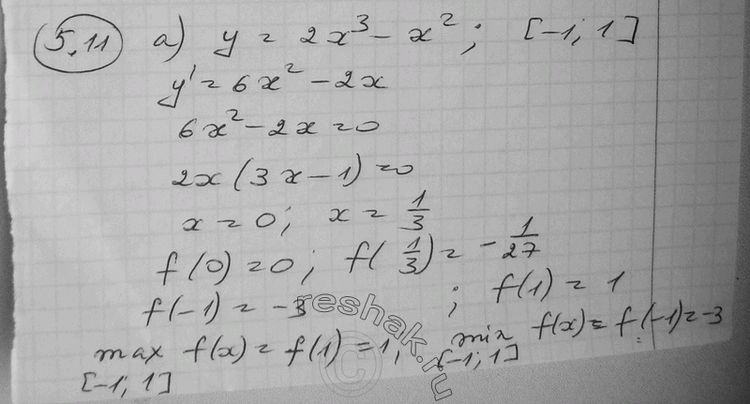 5.11 а) y = 2x³ - x²; [-1; 1]
y' = 6x² - 2x
6x² - 2x = 0
2x(3x - 1) = 0
x = 0; x = 1/3
f(0) = 0; f(1/3) = -1/27
f(-1) = -3; f(1) = 1
max f(x) = f(1) = 1, min f(x) = f(-1) = -3
[-1; 1] [-1; 1]
reshak.ru